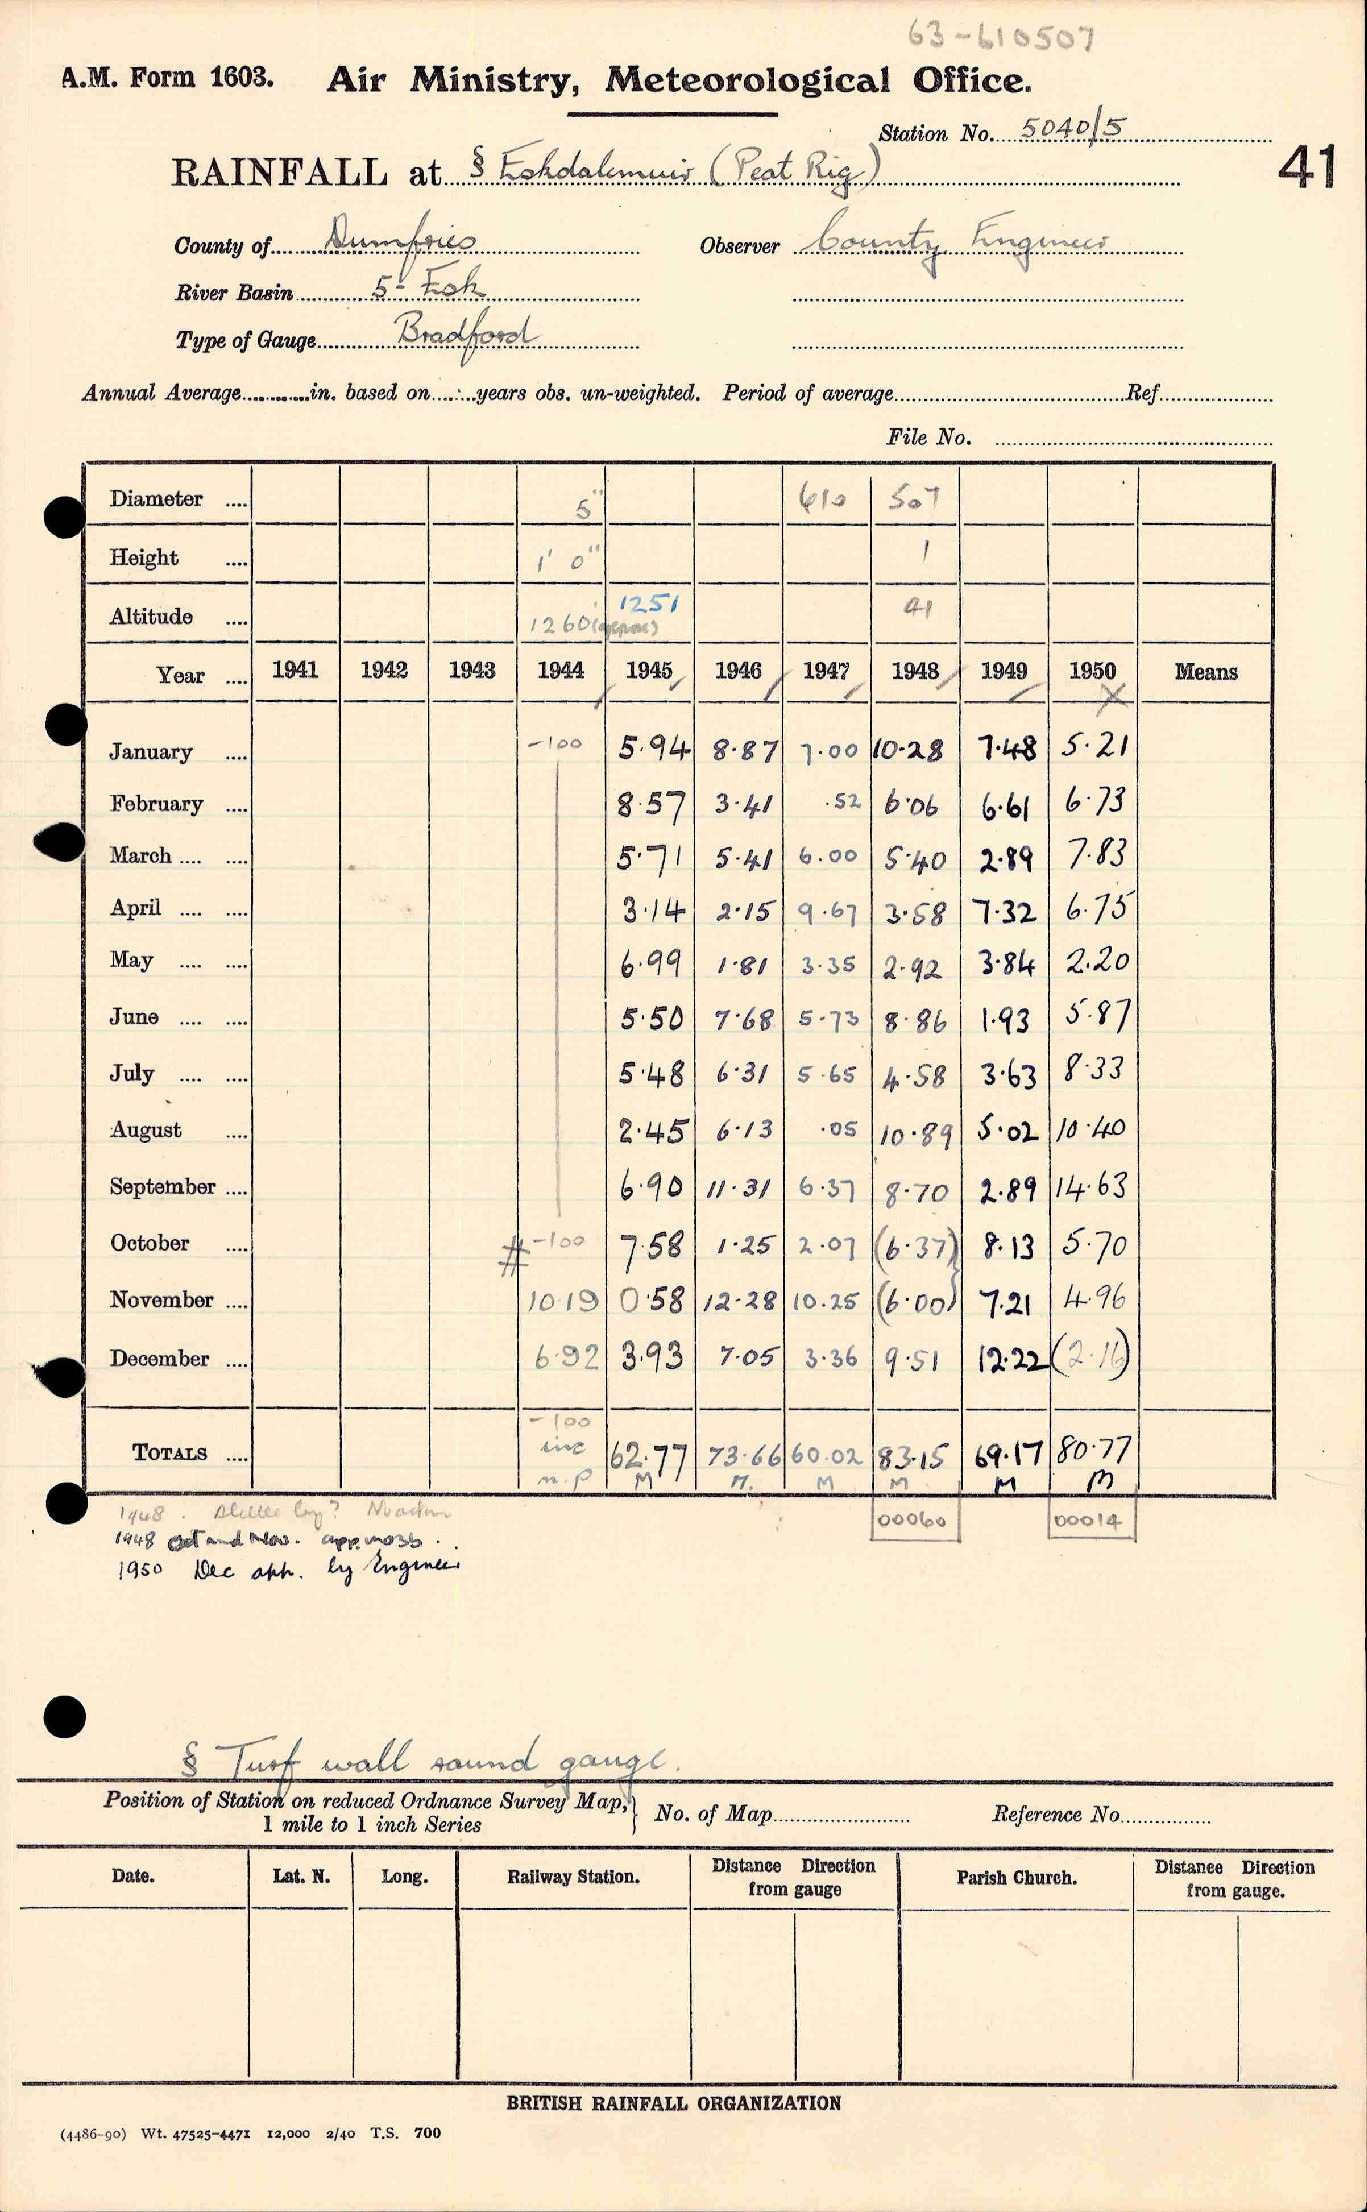 63-610507
A.M. Form 1603. Air Ministry, Meteorological Office.
Station No. 5040/5
41
RAINFALL at § Eskdalemuir (Peat Rig)
County of Dumfries Observer County Engineer
River Basin 5- Esk
Type of Gauge Bradford
Annual Average in. based on years obs. un-weighted. Period of average Ref.
File No.
Diameter 5" 610 507
Height 1' 0" 1
Altitude 1260 (approx) 1251 41
Year 1941 1942 1943 1944 1945 1946 1947 1948 1949 1950 Means
January -100 5.94 8.87 7.00 10.28 7.48 5.21
February 8.57 3.41 .52 6.06 6.61 6.73
March 5.71 5.41 6.00 5.40 2.89 7.83
April 3.14 2.15 9.67 3.58 7.32 6.75
May 6.99 1.81 3.35 2.92 3.84 2.20
June 5.50 7.68 5.73 8.86 1.93 5.87
July 5.48 6.31 5.65 4.58 3.63 8.33
August 2.45 6.13 .05 10.89 5.02 10.40
September 6.90 11.31 6.37 8.70 2.89 14.63
October # -100 7.58 1.25 2.07 (6.37) 8.13 5.70
November 10.19 0.58 12.28 10.25 (6.00) 7.21 4.96
December 6.92 3.93 7.05 3.36 9.51 12.22 (2.16)
TOTALS -100 inc n.p 62.77 73.66 60.02 83.15 69.17 80.77
M M M M M M
00060 00014
1948.
1948 Oct and Nov. approx
1950 Dec app. by Engineer
§ Turf wall round gauge.
Position of Station on reduced Ordnance Survey Map, 1 mile to 1 inch Series } No. of Map Reference No.
Date. Lat. N. Long. Railway Station. Distance Direction from gauge Parish Church. Distance Direction from gauge.
BRITISH RAINFALL ORGANIZATION
(4486-90) Wt. 47525-4471 12,000 2/40 T.S. 700